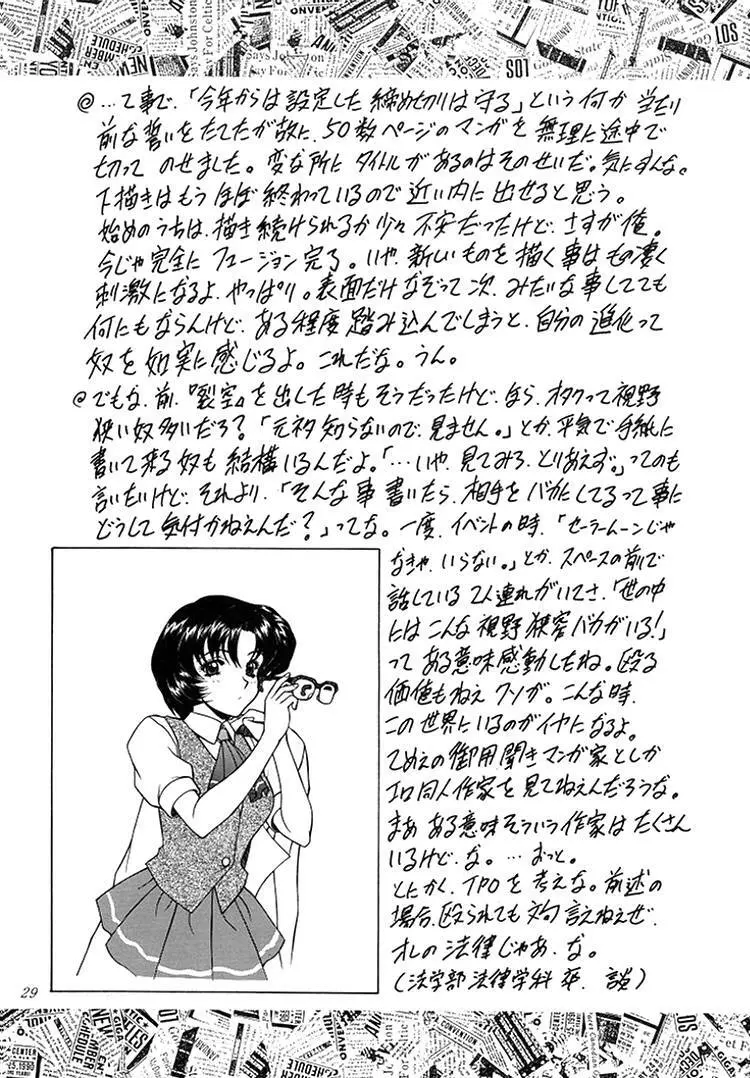 @…て事で、「今年からは設定した締め切りは守る」という何か当たり
前な誓いをたてたが故に、50数ページのマンガを無理に途中で
切ってのせました。変な所にタイトルがあるのはそのせいだ。気にすんな。
下描きはもうほぼ終わっているので近い内に出せると思う。
始めのうちは、描き続けられるか少々不安だったけど、さすが俺。
今じゃ完全にフュージョン完了。いや、新しいものを描く事はもの凄く
刺激になるよ、やっぱり。表面だけなぞって次、みたいな事してても
何にもならんけど、ある程度踏み込んでしまうと、自分の進化って
奴を如実に感じるよ。これだな。うん。
@でもな、前、『裂空』を出した時もそうだったけど、なら、オタクって視野
狭い奴多いだろ?「元ネタ知らないので、見ません。」とか、平気で手紙に
書いて来る奴も結構いるんだよ。「…いや、見てみろ、とりあえず。」ってのも
言いたいけど、それより、「そんな事書いたら、相手をバカにしてるって事に
どうして気付かねえんだ?」ってな。一度、イベントの時、「セーラームーンじゃ
なきゃ、いらない。」とか、スペースの前で
話している2人連れがいてさ、「世の中
にはこんな視野狭窄バカがいる!」
ってある意味感動したね。殴る
価値もねえクソが。こんな時、
この世界にいるのがイヤになるよ。
てめえの御用聞きマンガ家としか
エロ同人作家を見てねえんだろうな。
まあある意味そういう作家はたくさん
いるけど、な。…おっと。
とにかく、TPOを考えな。前述の
場合、殴られても文句言えねえぜ、
オレの法律じゃあ、な。
(法学部法律学科卒、談)
29